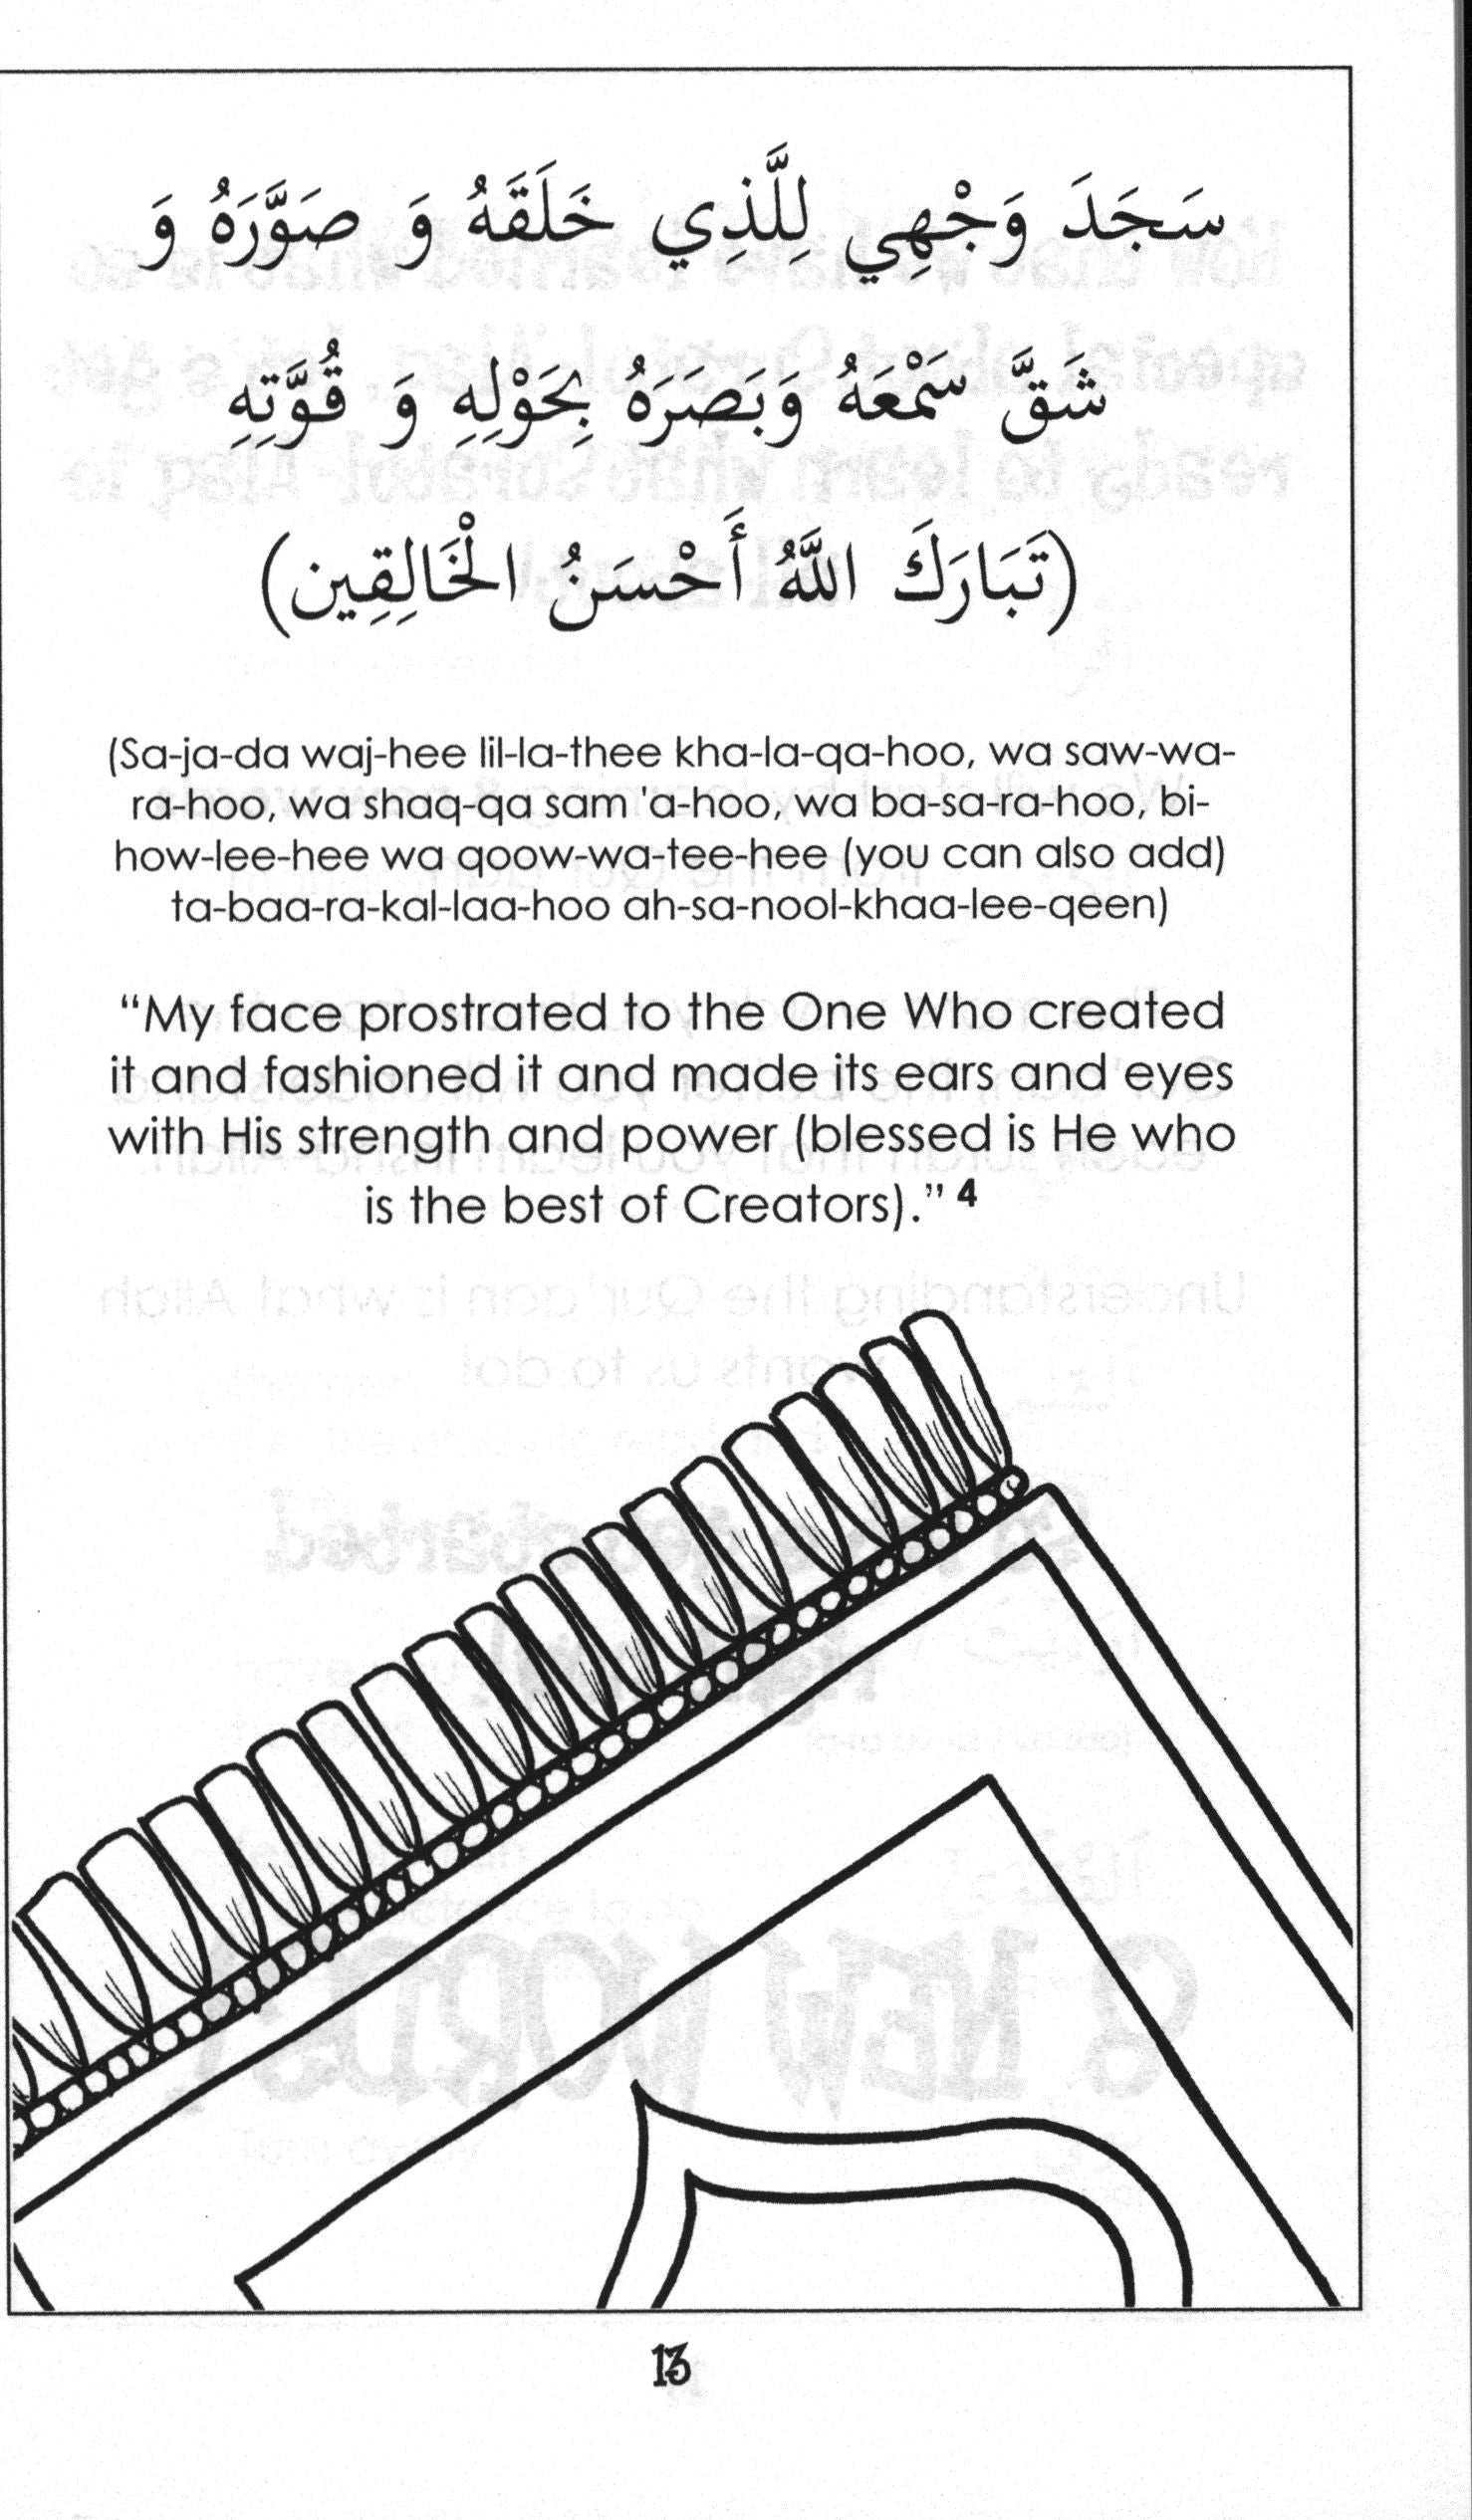 سَجَدَ وَجْهِي لِلَّذِي خَلَقَهُ وَ صَوَّرَهُ وَ
شَقَّ سَمْعَهُ وَبَصَرَهُ بِحَوْلِهِ وَ قُوَّتِهِ
(تَبَارَكَ اللَّهُ أَحْسَنُ الْخَالِقِين)
(Sa-ja-da waj-hee lil-la-thee kha-la-qa-hoo, wa saw-wa-
ra-hoo, wa shaq-qa sam 'a-hoo, wa ba-sa-ra-hoo, bi-
how-lee-hee wa qoow-wa-tee-hee (you can also add)
ta-baa-ra-kal-laa-hoo ah-sa-nool-khaa-lee-qeen)
“My face prostrated to the One Who created
it and fashioned it and made its ears and eyes
with His strength and power (blessed is He who
is the best of Creators).” 4
13